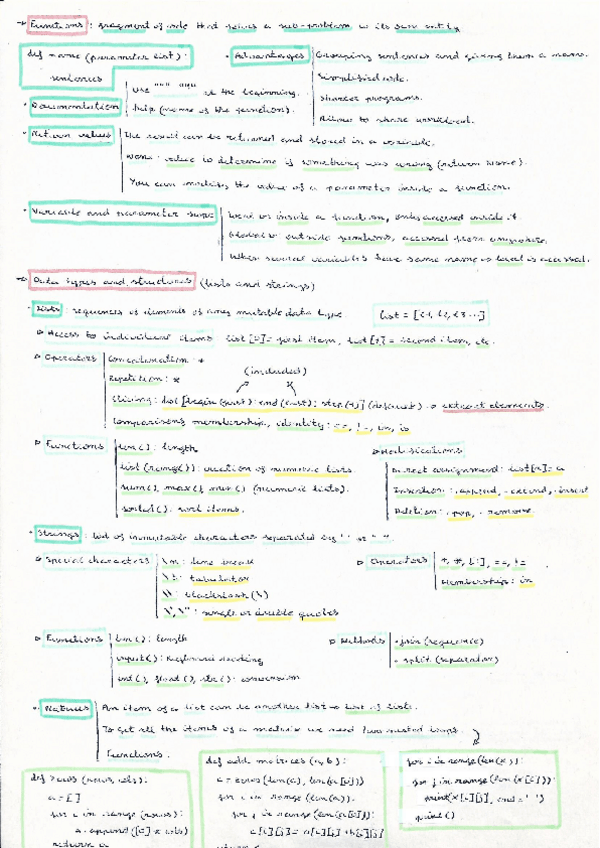 → Functions: fragment of code that solves a sub-problem w its own entity
def name (parameter list):
sentences
• Advantages
Grouping sentences and giving them a name.
Simplified code.
Shorter programs.
Allows to share workload.
• Documentation
Use """ """ at the beginning.
help (name of the function).
• Return values
The result can be returned and stored in a variable.
None: value to determine if something was wrong (return None).
You can modify the value of a parameter inside a function.
• Variable and parameter scope
Local → inside a function, only accessed inside it.
Global → outside functions, accessed from anywhere.
When several variables have same name → local is accessed.
→ Data types and structures (lists and strings)
• Lists: sequences of elements of any mutable data type
list = [
▷ Access to individual items list[0] = first item, list[1] = second item, etc.
▷ Operators
Concatenation: +
Repetition: *
(included)
Slicing: list [begin (first): end (last): step (+1)] → extract elements.
Comparisons membership, identity: ==, !=, in, is
▷ Functions
len(): length
list (range()): creation of numeric lists.
sum(), max(), min() (numeric lists).
sorted(): sort items.
▷ Modifications
Direct assignment: list[n] = a
Insertion: .append, .extend, .insert
Deletion: .pop, .remove.
• Strings: list of immutable characters separated by ' ' or " ".
▷ Special characters
\n: line break
\t: tabulator
\\: blackslash (\)
\', \": single or double quotes
▷ Operators
+, *, [:], ==, !=
Membership: in
▷ Functions
len(): length
input(): keyboard reading
int(), float(), str(): conversion
▷ Methods
.join (sequence)
.split (separator)
• Matrices
An item of a list can be another list → list of lists.
To get all the items of a matrix we need two nested loops.
Functions.
def zeros (rows, cols):
a = []
for i in range (rows):
a.append ([0] * cols)
return a
def add_matrices (a, b):
c = zeros (len(a), len(a[0]))
for i in range (len(a)):
for j in range (len(a[0])):
c[i][j] = a[i][j] + b[i][j]
for i in range (len(x)):
for j in range (len(x[i])):
print (x[i][j], end = ' ')
print ()